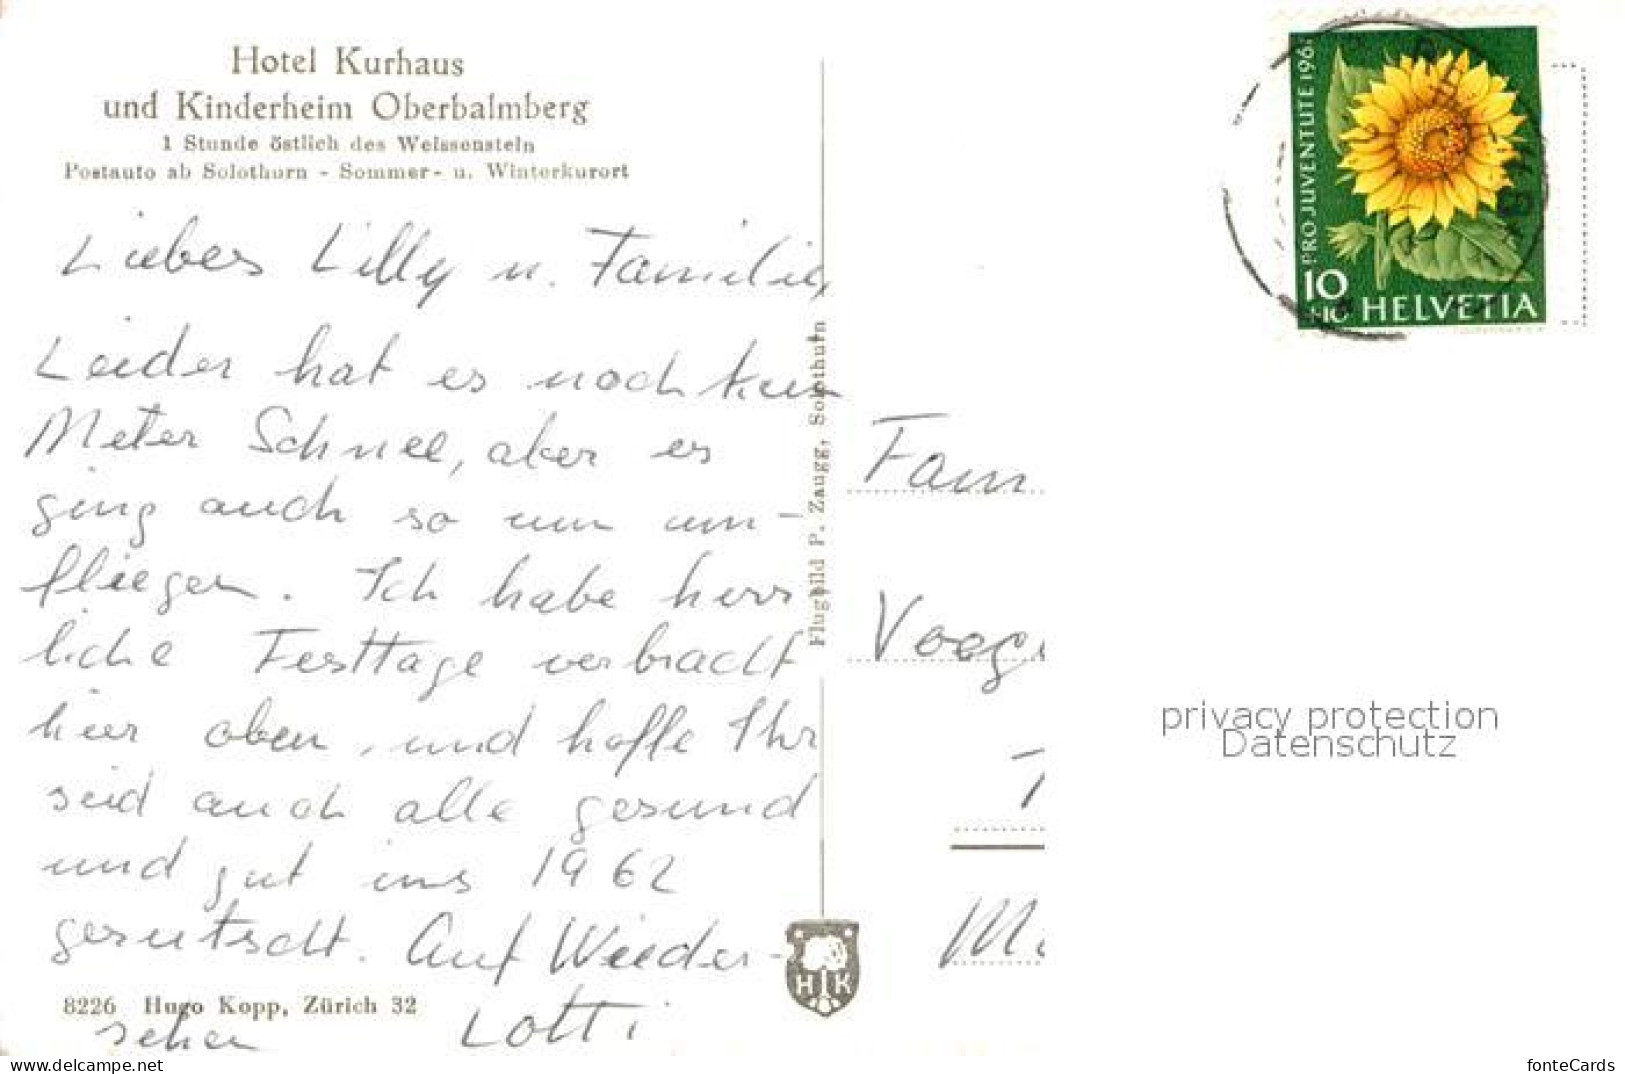 Hotel Kurhaus
und Kinderheim Oberbalmberg
1 Stunde östlich des Weissenstein
Postauto ab Solothurn - Sommer- u. Winterkurort
Liebes Lilly u. Familie,
Leider hat es noch kein
Meter Schnee, aber es
ging auch so um um-
fliegen. Ich habe herr
liche Festtage verbracht
hier oben, und hoffe Ihr
seid auch alle gesund
und gut ins 1962
gerutscht. Auf Wieder-
sehen Lotti
8226 Hugo Kopp, Zürich 32
Flugbild P. Zaugg, Solothurn
H K
PRO JUVENTUTE 196
10
+10 HELVETIA
Fam
Voeg
M
privacy protection
Datenschutz
delcampe.net
fonteCards